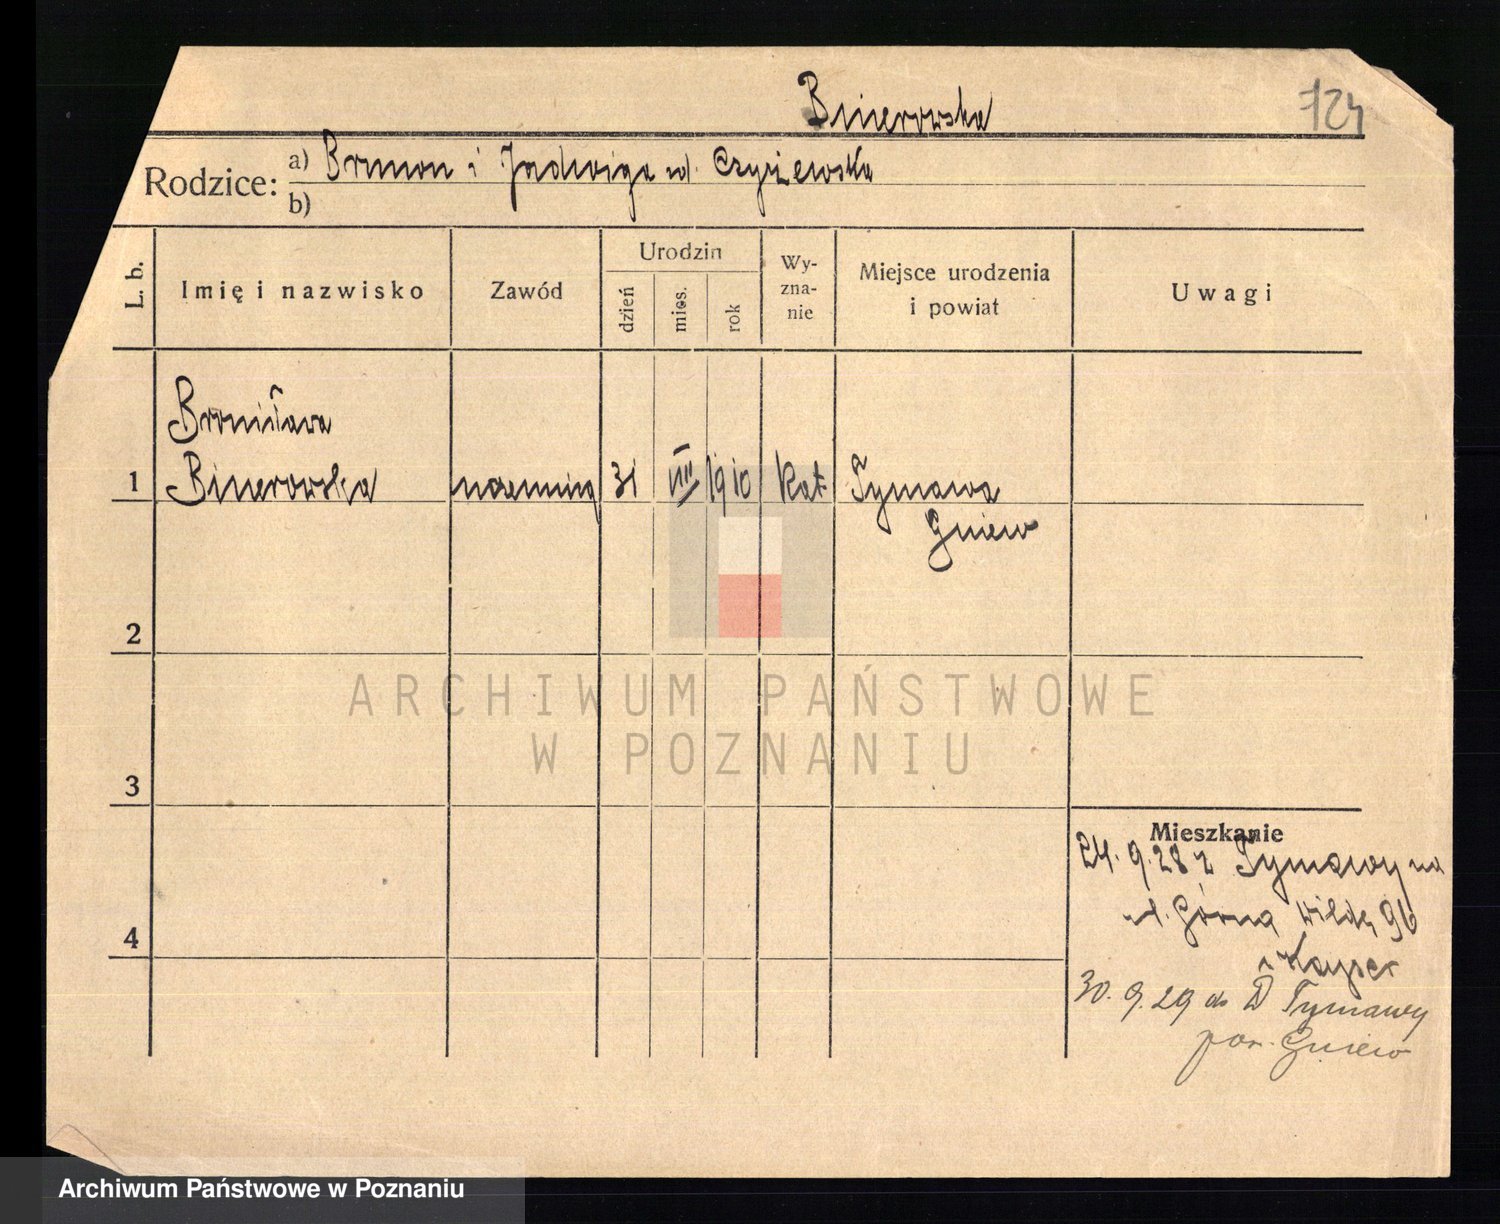 Binerowska
124
Rodzice: a) Brunon i Jadwiga ur. Czyżewska
b)
L. b.
Imię i nazwisko
Zawód
Urodzin
dzień
mies.
rok
Wy-
zna-
nie
Miejsce urodzenia
i powiat
Uwagi
Bronisława
1 Binerowska 31 VIII 1910 kat Tymawa
Gniew
2
ARCHIWUM PAŃSTWOWE
W POZNANIU
3
Mieszkanie
24. 9. 28 z Tymawy na
ul. Górna Wilda 96
4
Kayser
30. 9. 29 do Tymawy
pow. Gniew
Archiwum Państwowe w Poznaniu